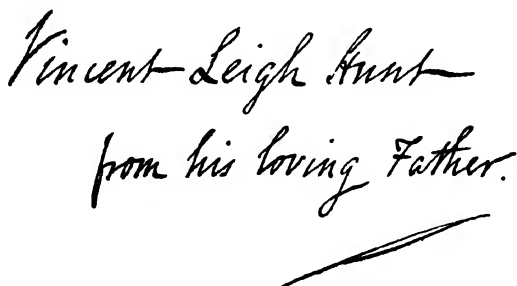 Vincent Leigh Hunt
from his loving Father.